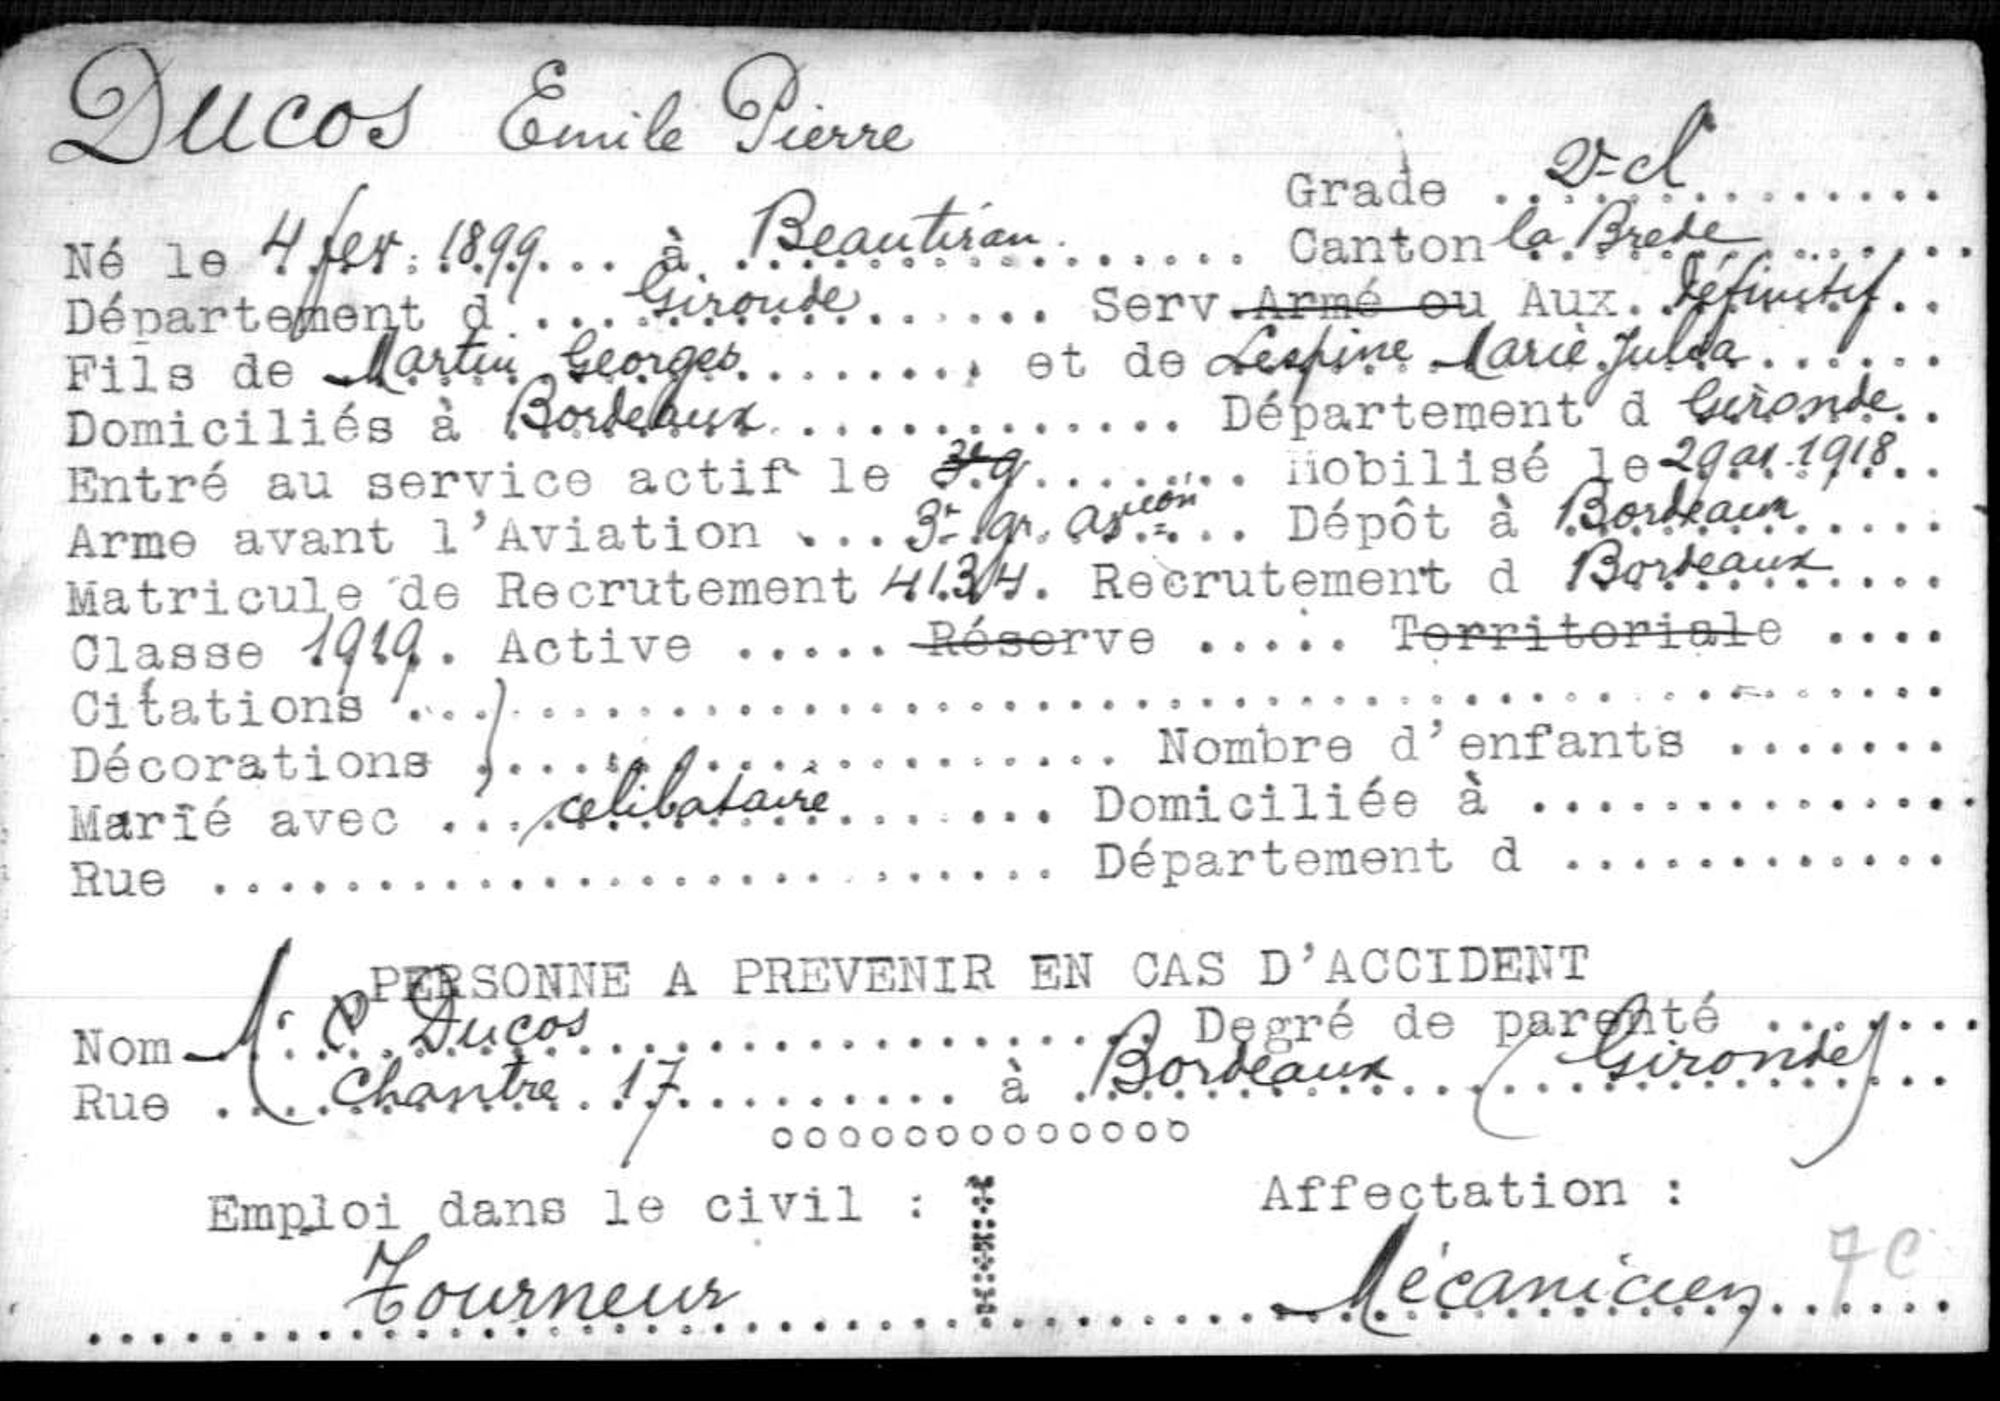 Ducos Emile Pierre
Grade .. 2e cl ........
Né le 4 fev. 1899 ... à Beautiran ........ Canton la Brede ......
Département d ... Gironde ...... Serv Armé ou Aux. Définitif ..
Fils de Martin Georges ........ et de Lespine Marie Julia ......
Domiciliés à Bordeaux ............. Département d Gironde ..
Entré au service actif le ........ Mobilisé le 29 av. 1918 ..
Arme avant l'Aviation ... 3e gr. aviion ... Dépôt à Bordeaux ......
Matricule de Recrutement 4134. Recrutement d Bordeaux ......
Classe 1919. Active ..... Réserve ..... Territoriale ....
Citations ........................................
Décorations ........................ Nombre d'enfants .......
Marié avec ... célibataire ....... Domiciliée à ..............
Rue ........................ Département d ............
PERSONNE A PREVENIR EN CAS D'ACCIDENT
Nom Mr P Ducos .................... Degré de parenté .......
Rue .. Chantre 17 .......... à Bordeaux (Gironde) ...
ooooooooooooo
Emploi dans le civil : Affectation :
Tourneur Mécanicien 7C